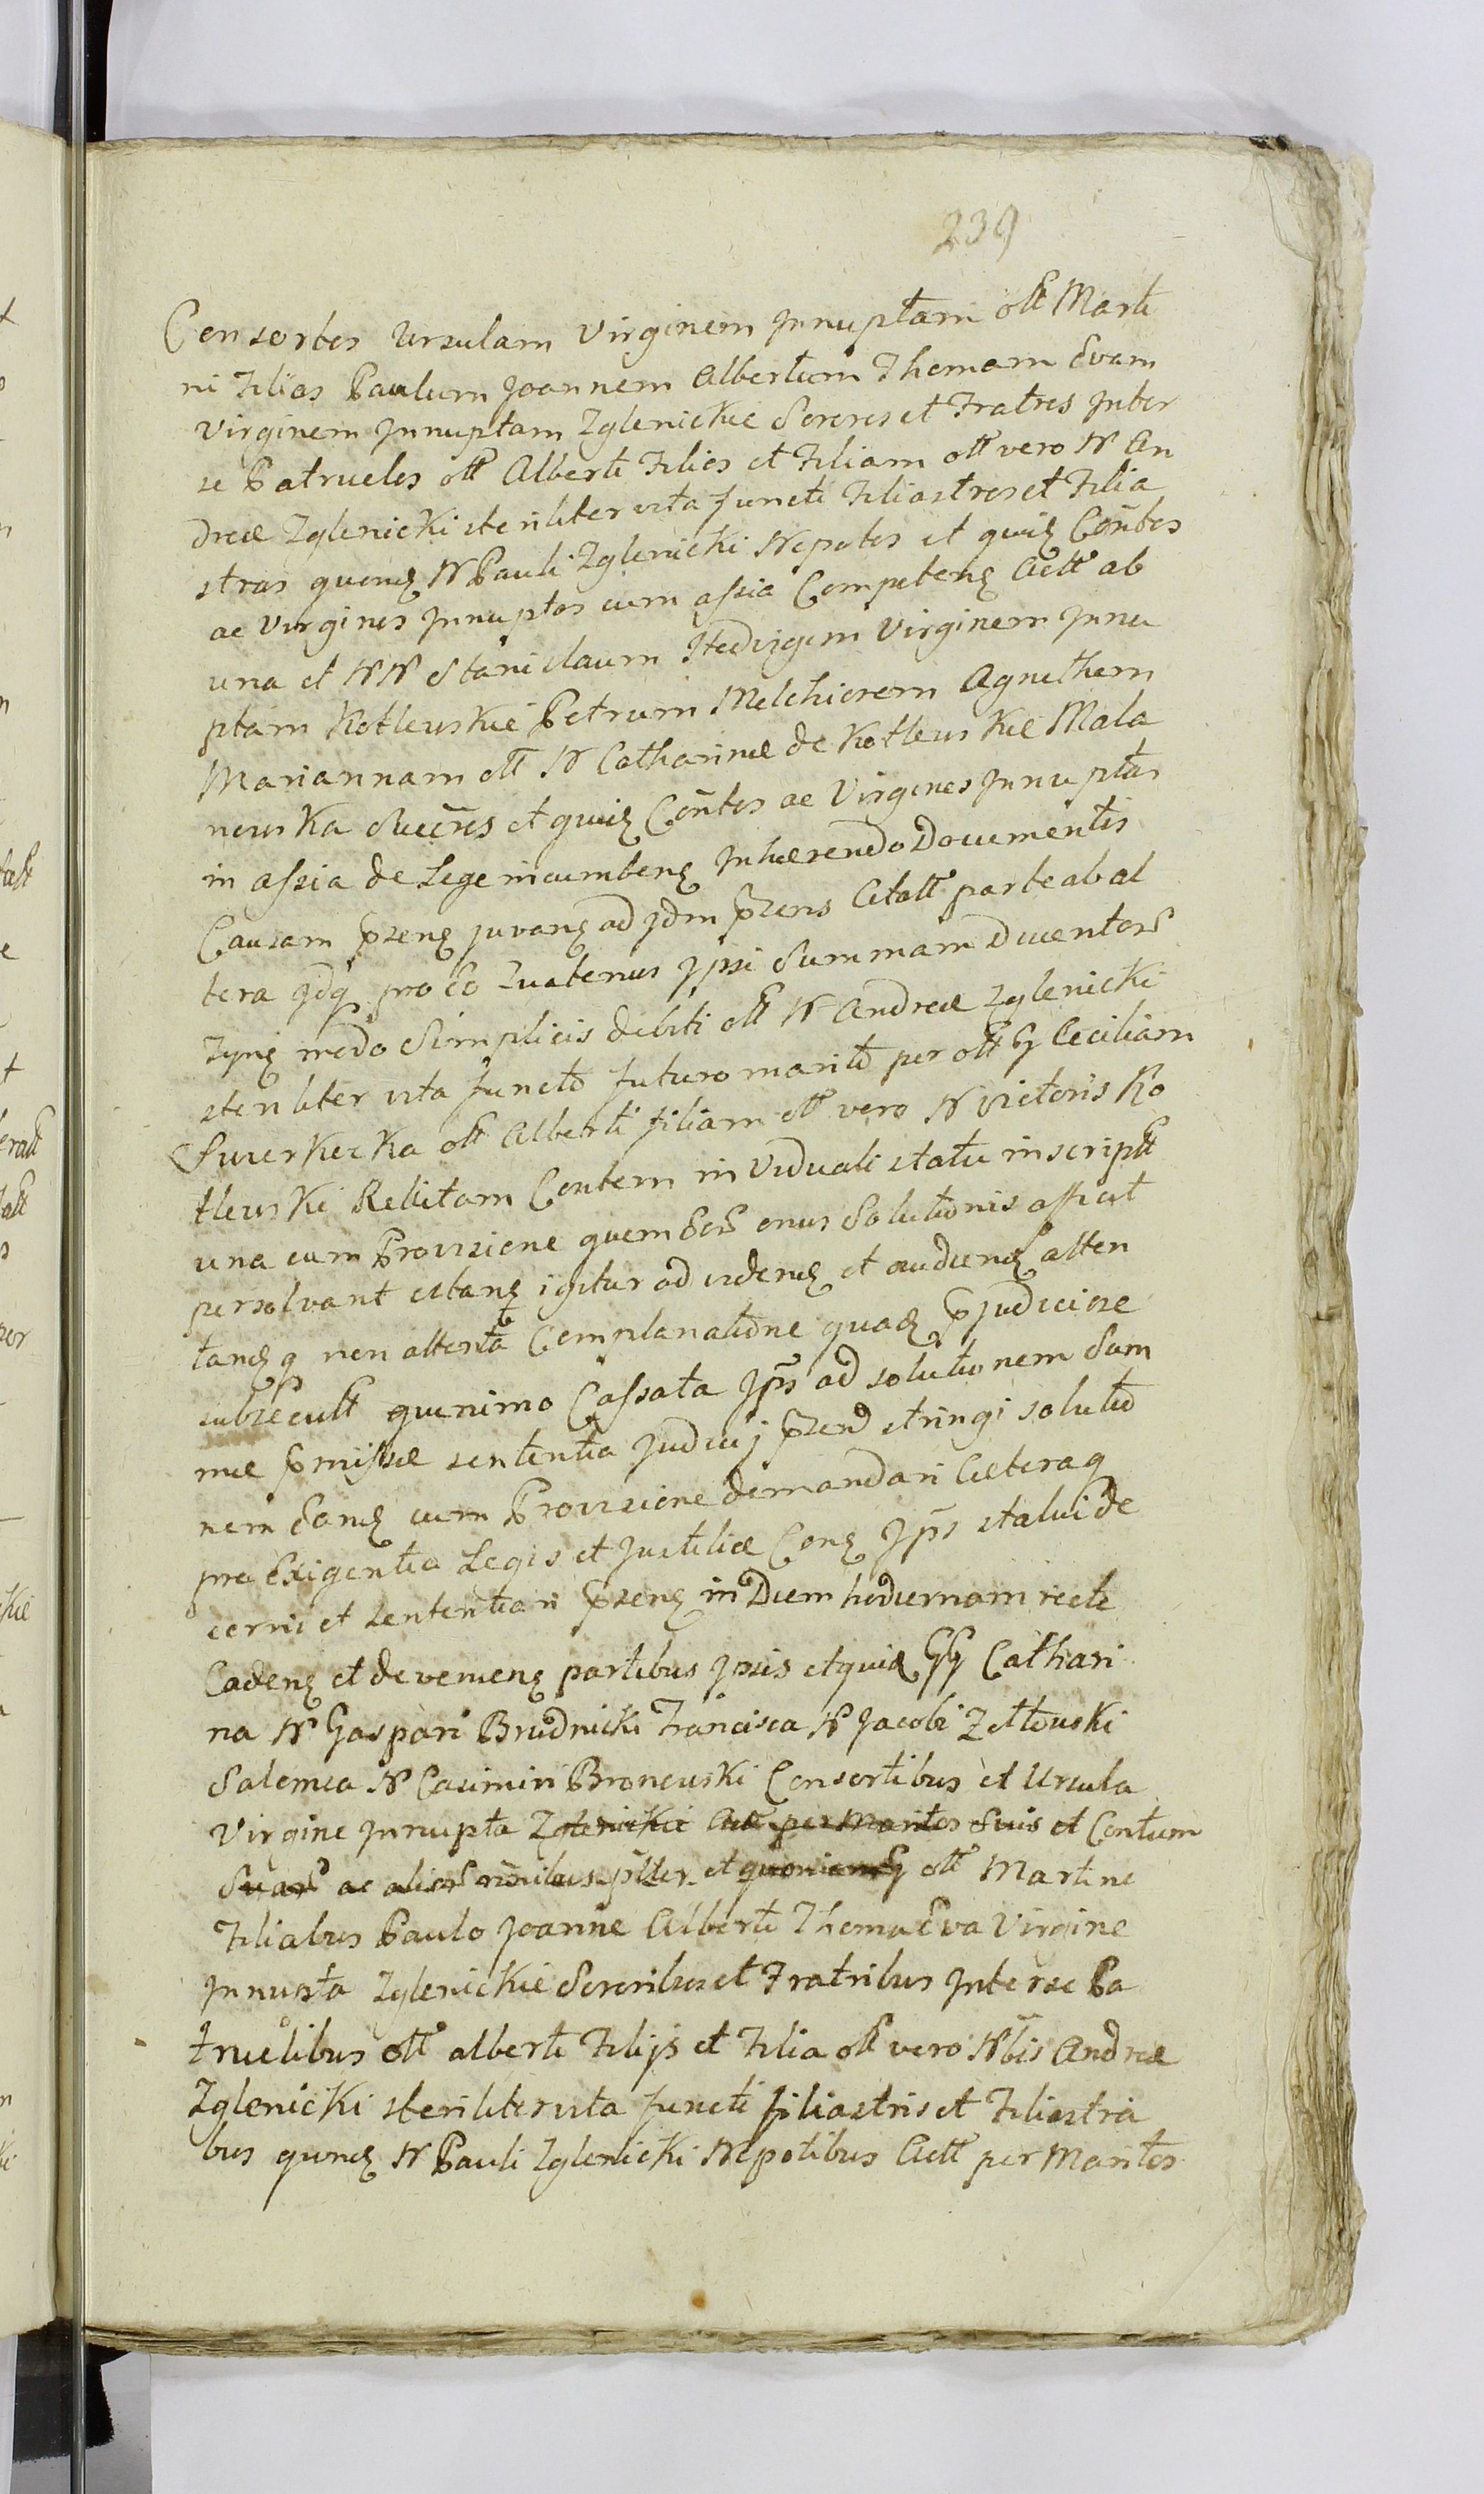 239
Consortes Ursulam Virginem Jnnuptam olt Marti
ni Filias Paulum Joannem Albertum Thomam Evam
Virginem Jnnuptam Zglenickie Sorores et Fratres Jnter
se Patrueles olt Alberti Filios et Filiam olt vero N An
dreæ Zglenicki steriliter vita functi Filiastros et Filia
stras quonq N Pauli Zglenicki Nepotes et quiq Contes
ac Virgines Jnnuptas cum assia Competenq Actt ab
una et NN Stanislaum Hedvigem Virginem Jnnu
ptam Kotleuskie Petrum Melchiorem Agnethem
Mariannam olt N Catharinæ de Kotleuskie Mala
nouska Succres et quiq Contes ac Virgines Jnnuptas
in assia de Lege incumbenq Jnhærendo Documentis
Causam pzenq juvanq ad jdm pzens Citatt parte ab al
tera jdq pro eo Quatenus Jpsi Summam Ducentor
Zynq modo Simplicis debiti olt N Andreæ Zglenicki
steriliter vita functo futuro marito per olt G Ceciliam
Swierkocka olt Alberti filiam olt vero N Victoris Ko
tleuski Relictam Contem in Viduali statu inscriptt
una cum Provisione quem eor onus Solutionis afficit
persolvant citanq igitur ad vidend et audiend atten
tanq q non attenta Complanatione quaq pjudiciose
subsecutt quinimo Cassata Jps ad solutionem Sum
mæ pmissæ sententia judicij pzend stringi solutio
nem Eamq cum Provisione demandari Cæteraq
pro Exigentia Legis et Justitiæ Conq Jps statui de
cerni et sententiari pzenq in Diem hodiernam recte
Cadenq et devenienq partibus Jpsis et quiq GG Cathari
na N Gaspari Brudnicki Francisca N Jacobi Zettouski
Salomea N Casimiri Bronouski Consortibus et Ursula
Virgine Jnnupta Zglenickie Actt per Maritos Suis et Contum
Suar ac alior nibus ptter et quoniam G olt Martini
Filiabus Paulo Joanne Alberti Thoma Eva Virgine
Jnnupta Zglenickie Sororibus et Fratribus Jnter se Pa
truelibus olt alberti Filijs et Filia olt vero Nblis Andreæ
Zglenicki steriliter vita functi filiastris et Filiastra
bus quonq N Pauli Zglenicki Nepotibus Actt per Maritos